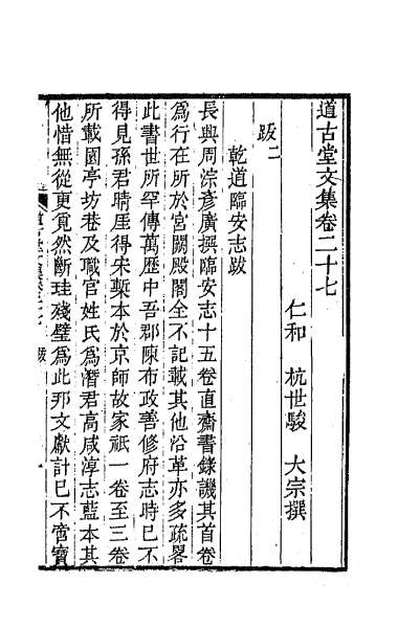 道古堂文集卷二十七
仁和　杭世駿　大宗撰
跋二
乾道臨安志跋
長興周淙彥廣撰臨安志十五卷直齋書錄譏其首卷
爲行在所於宮闕殿閣全不記載其他沿革亦多疏畧
此書世所罕傳萬歷中吾郡陳布政善修府志時已不
得見孫君晴厓得宋槧本於京師故家祇一卷至三卷
所載園亭坊巷及職官姓氏爲潛君高咸淳志藍本其
他惜無從更覓然斷珪殘璧爲此邦文獻計已不啻寶